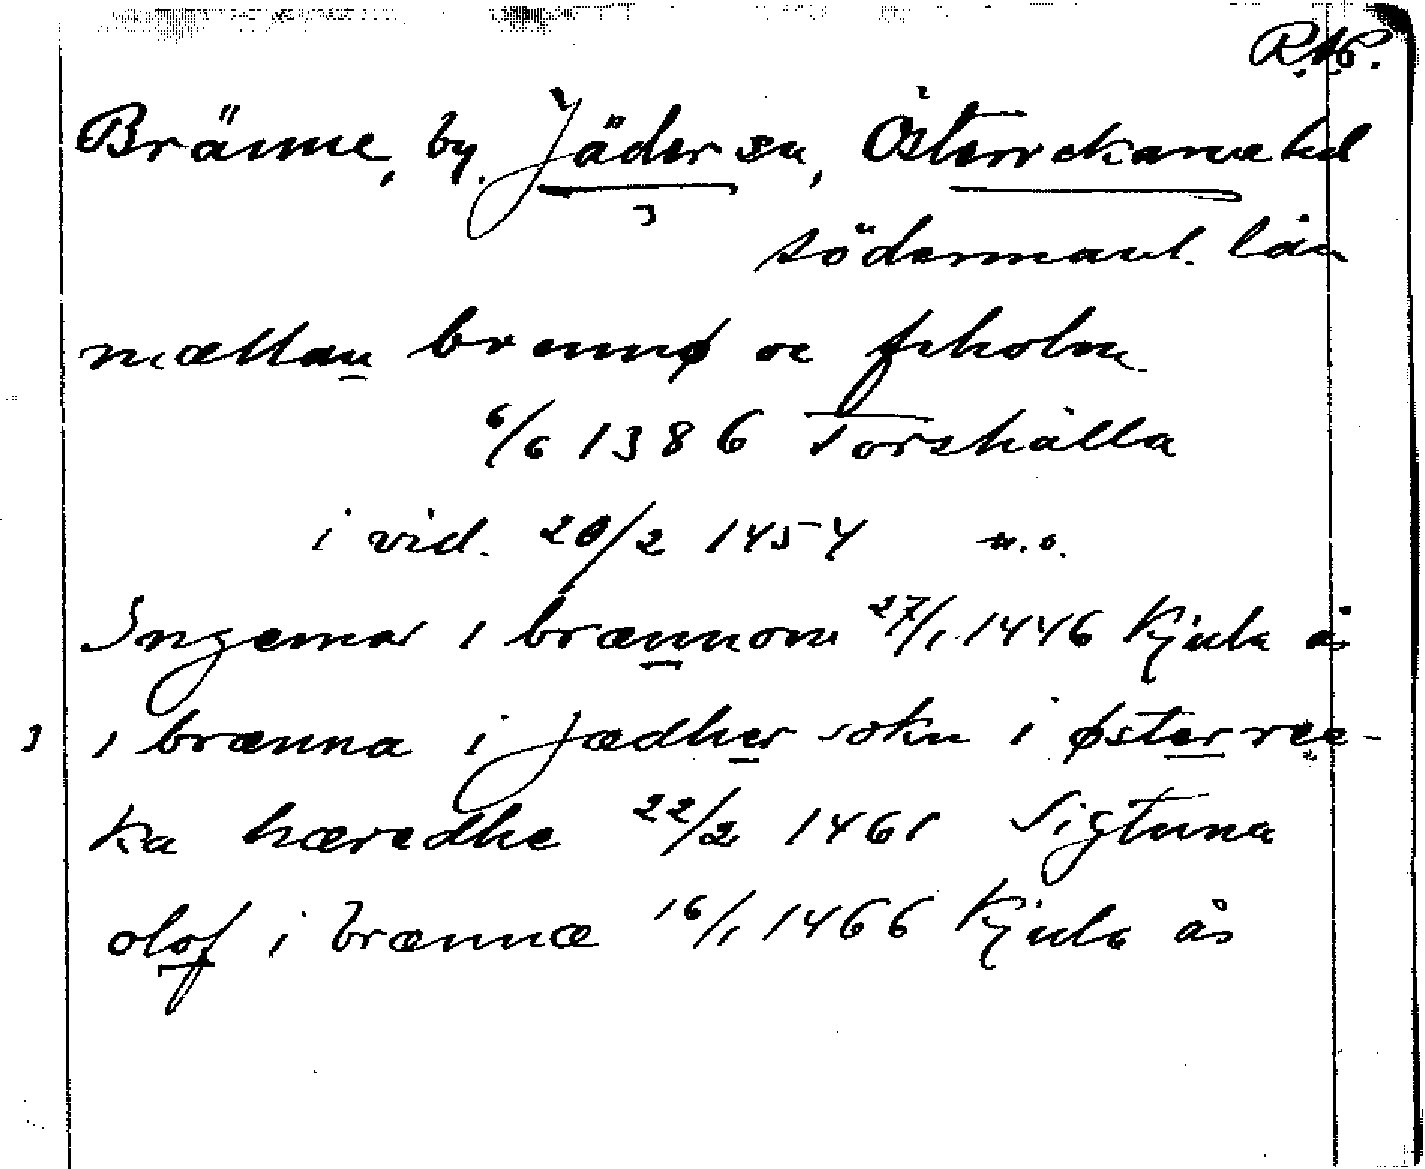 R.A.P.
Bränne, by. Jäder sn, Österrekarne hd
3
södermanl. län
mællan brennø oc fiholm
6/6 1386 Torshälla
i vid. 20/2 1454 n.o.
Ingemar i brænnom 27/1 1446 Kjula ås
3 i brænna i jædher sokn i østerree-
ka hæredhe 22/2 1461 Sigtuna
olof i brænnæ 16/1 1466 Kjula ås